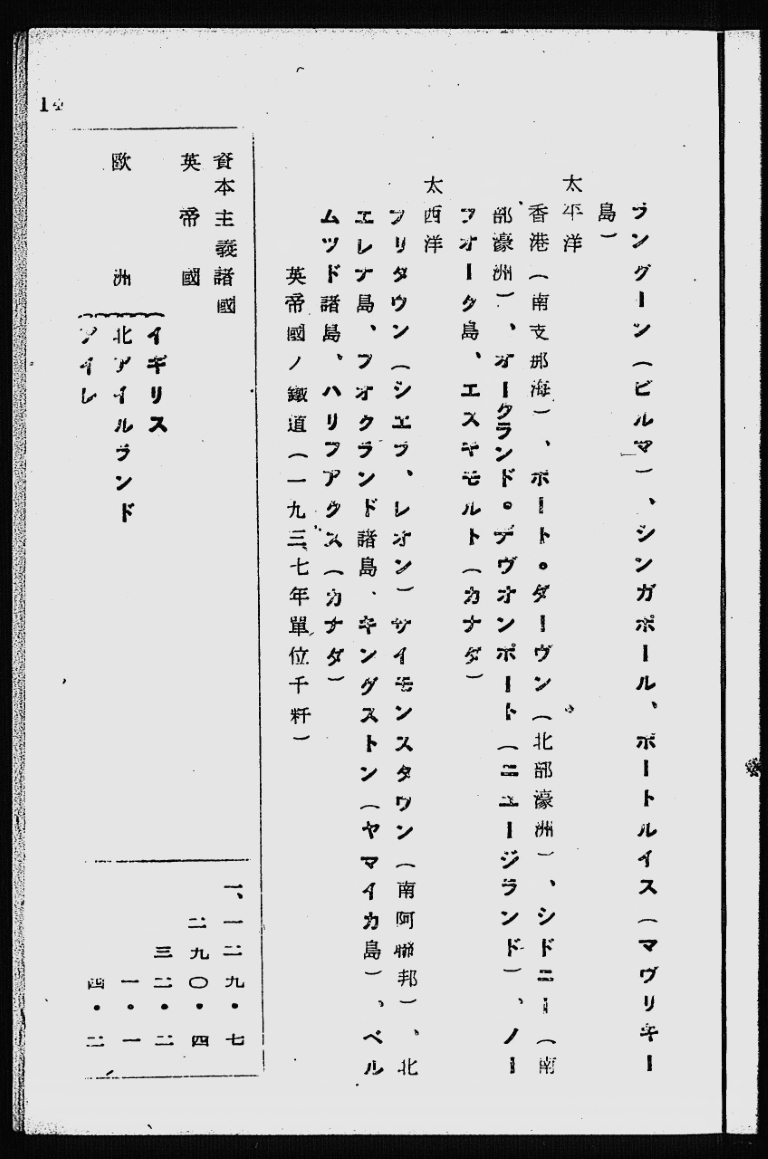 ラングーン（ビルマ）、シンガポール、ポートルイス（マヴリキー
島）
太平洋
香港（南支那海）、ポート。ダーヴン（北部濠洲）、シドニー（南
部濠洲）、オークランド。デヴオンポート（ニュージランド）、ノー
フオーク島、エスキモルト（カナダ）
太西洋
フリタウン（シエラ、レオン）サイモンスタウン（南阿聯邦）、北
エレナ島、フオクランド諸島、キングストン（ヤマイカ島）、ベル
ムツド諸島、ハリフアクス（カナダ）
英帝國ノ鐵道（一九三七年單位千粁）
資本主義諸國 一、一二九・七
英帝國 二九〇・四
欧洲
イギリス 三二・二
北アイルランド 一・一
アイレ 四・二